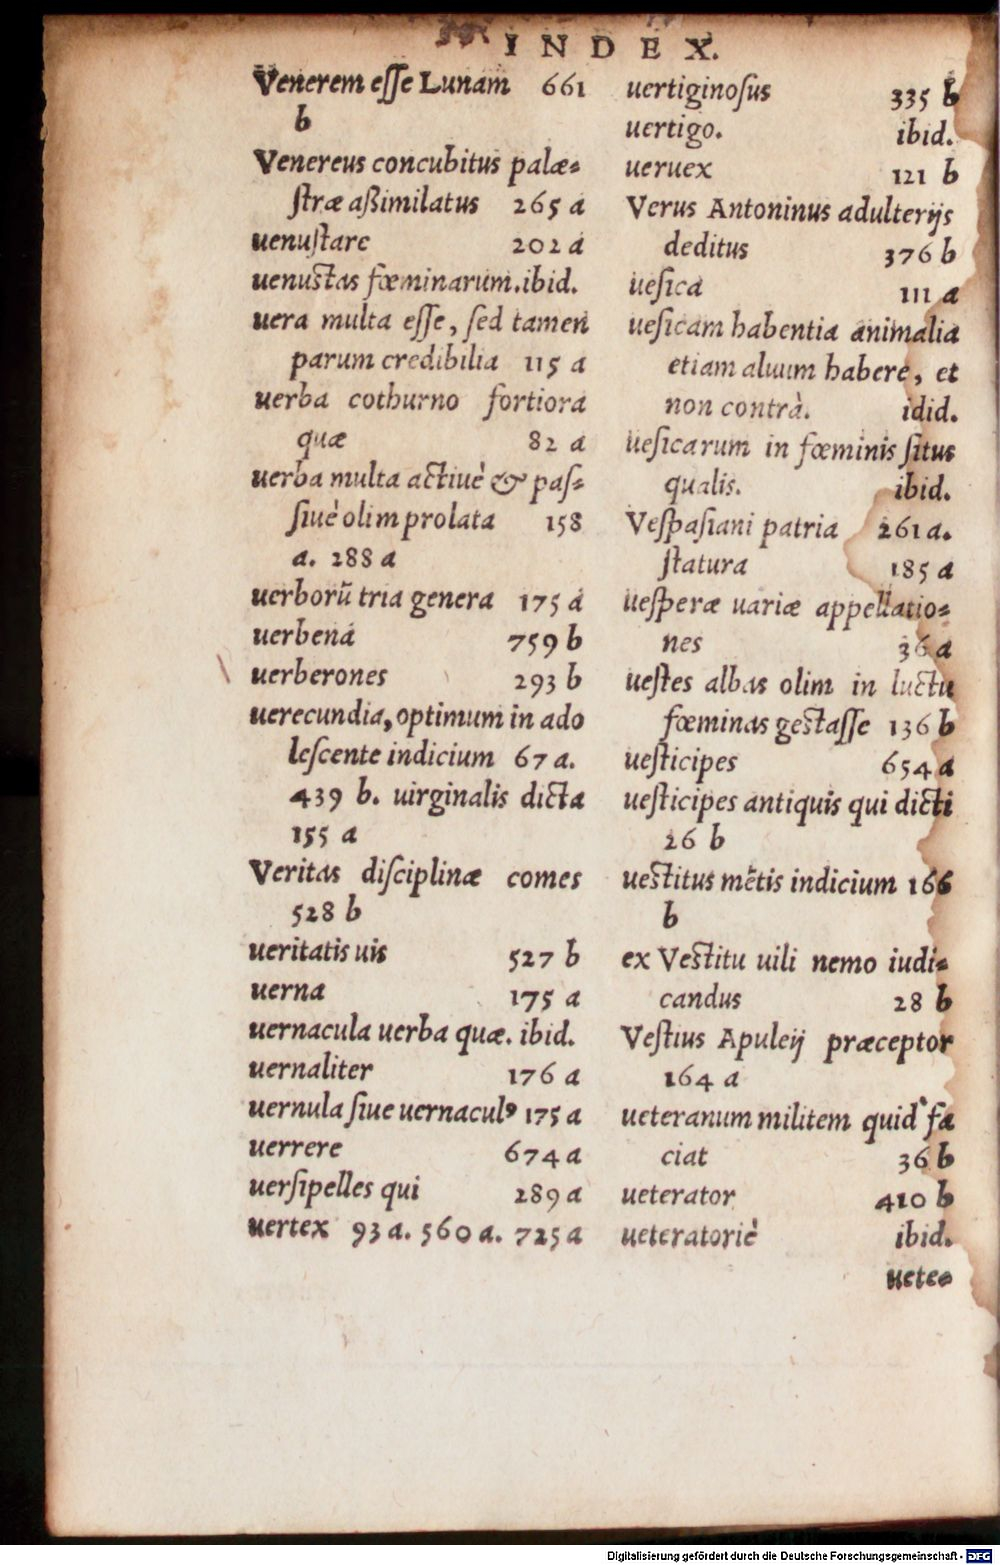 INDEX.
Venerem eſſe Lunam 661
b
Venereus concubitus palæ=
ſtræ aßimilatus 265 a
uenuſtare 202 a
uenuſtas fœminarum. ibid.
uera multa eſſe, ſed tamen
parum credibilia 115 a
uerba cothurno fortiora
quæ 82 a
uerba multa actiuè & paſ=
ſiuè olim prolata 158
a. 288 a
uerborũ tria genera 175 a
uerbena 759 b
uerberones 293 b
uerecundia, optimum in ado
leſcente indicium 67 a.
439 b. uirginalis dicta
155 a
Veritas diſciplinæ comes
528 b
ueritatis uis 527 b
uerna 175 a
uernacula uerba quæ. ibid.
uernaliter 176 a
uernula ſiue uernaculꝰ 175 a
uerrere 674 a
uerſipelles qui 289 a
uertex 93 a. 560 a. 725 a
uertiginoſus 335 b
uertigo. ibid.
ueruex 121 b
Verus Antoninus adulterijs
deditus 376 b
ueſica 111 a
ueſicam habentia animalia
etiam aluum habere, et
non contrà. idid.
ueſicarum in fœminis ſitus
qualis. ibid.
Veſpaſiani patria 261 a.
ſtatura 185 a
ueſperæ uariæ appellatio=
nes 36 a
ueſtes albas olim in luctu
fœminas geſtaſſe 136 b
ueſticipes 654 a
ueſticipes antiquis qui dicti
26 b
ueſtitus mẽtis indicium 166
b
ex Veſtitu uili nemo iudi=
candus 28 b
Veſtius Apuleij præceptor
164 a
ueteranum militem quid fa
ciat 36 b
ueterator 410 b
ueteratoriè ibid.
uete=
Digitalisierung gefördert durch die Deutsche Forschungsgemeinschaft - DFG